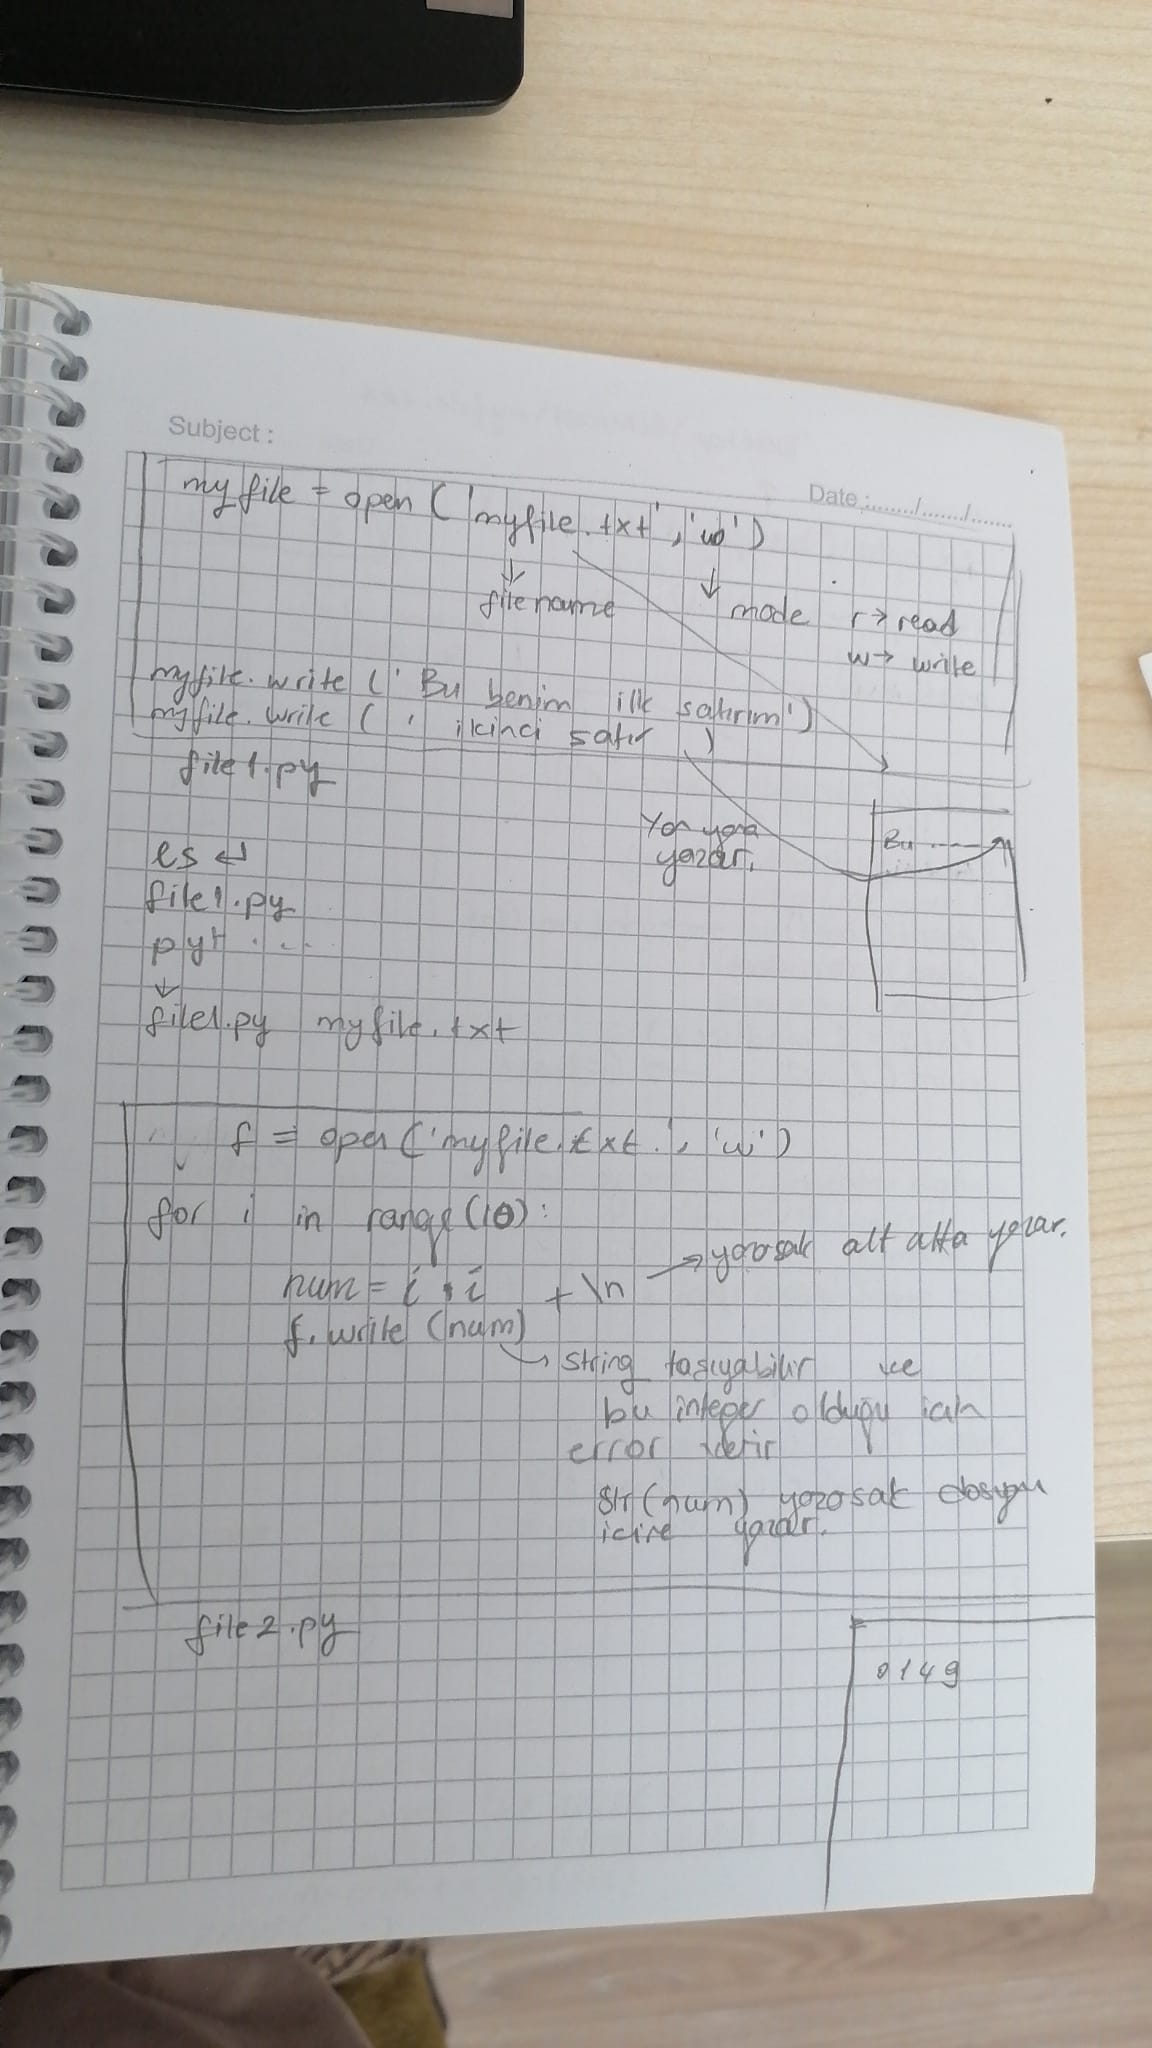 Subject :
Date :......./......./.......
myfile = open ('myfile.txt', 'w')
filename
mode r → read
w → write
myfile.write (' Bu benim ilk satırım')
myfile.write ( ' ikinci satır )
file1.py
Yan yana
yazar.
Bu
ls ↵
file1.py
pyt ...
↓
file1.py myfile.txt
f = open ('myfile.txt.', 'w')
for i in range (10):
→ yazarsak alt alta yazar.
num = i * i + \n
f. write (num)
→ string taşıyabilir ve
bu integer olduğu için
error verir
str (num) yazarsak dosyanın
içine yazar.
file2.py
0149